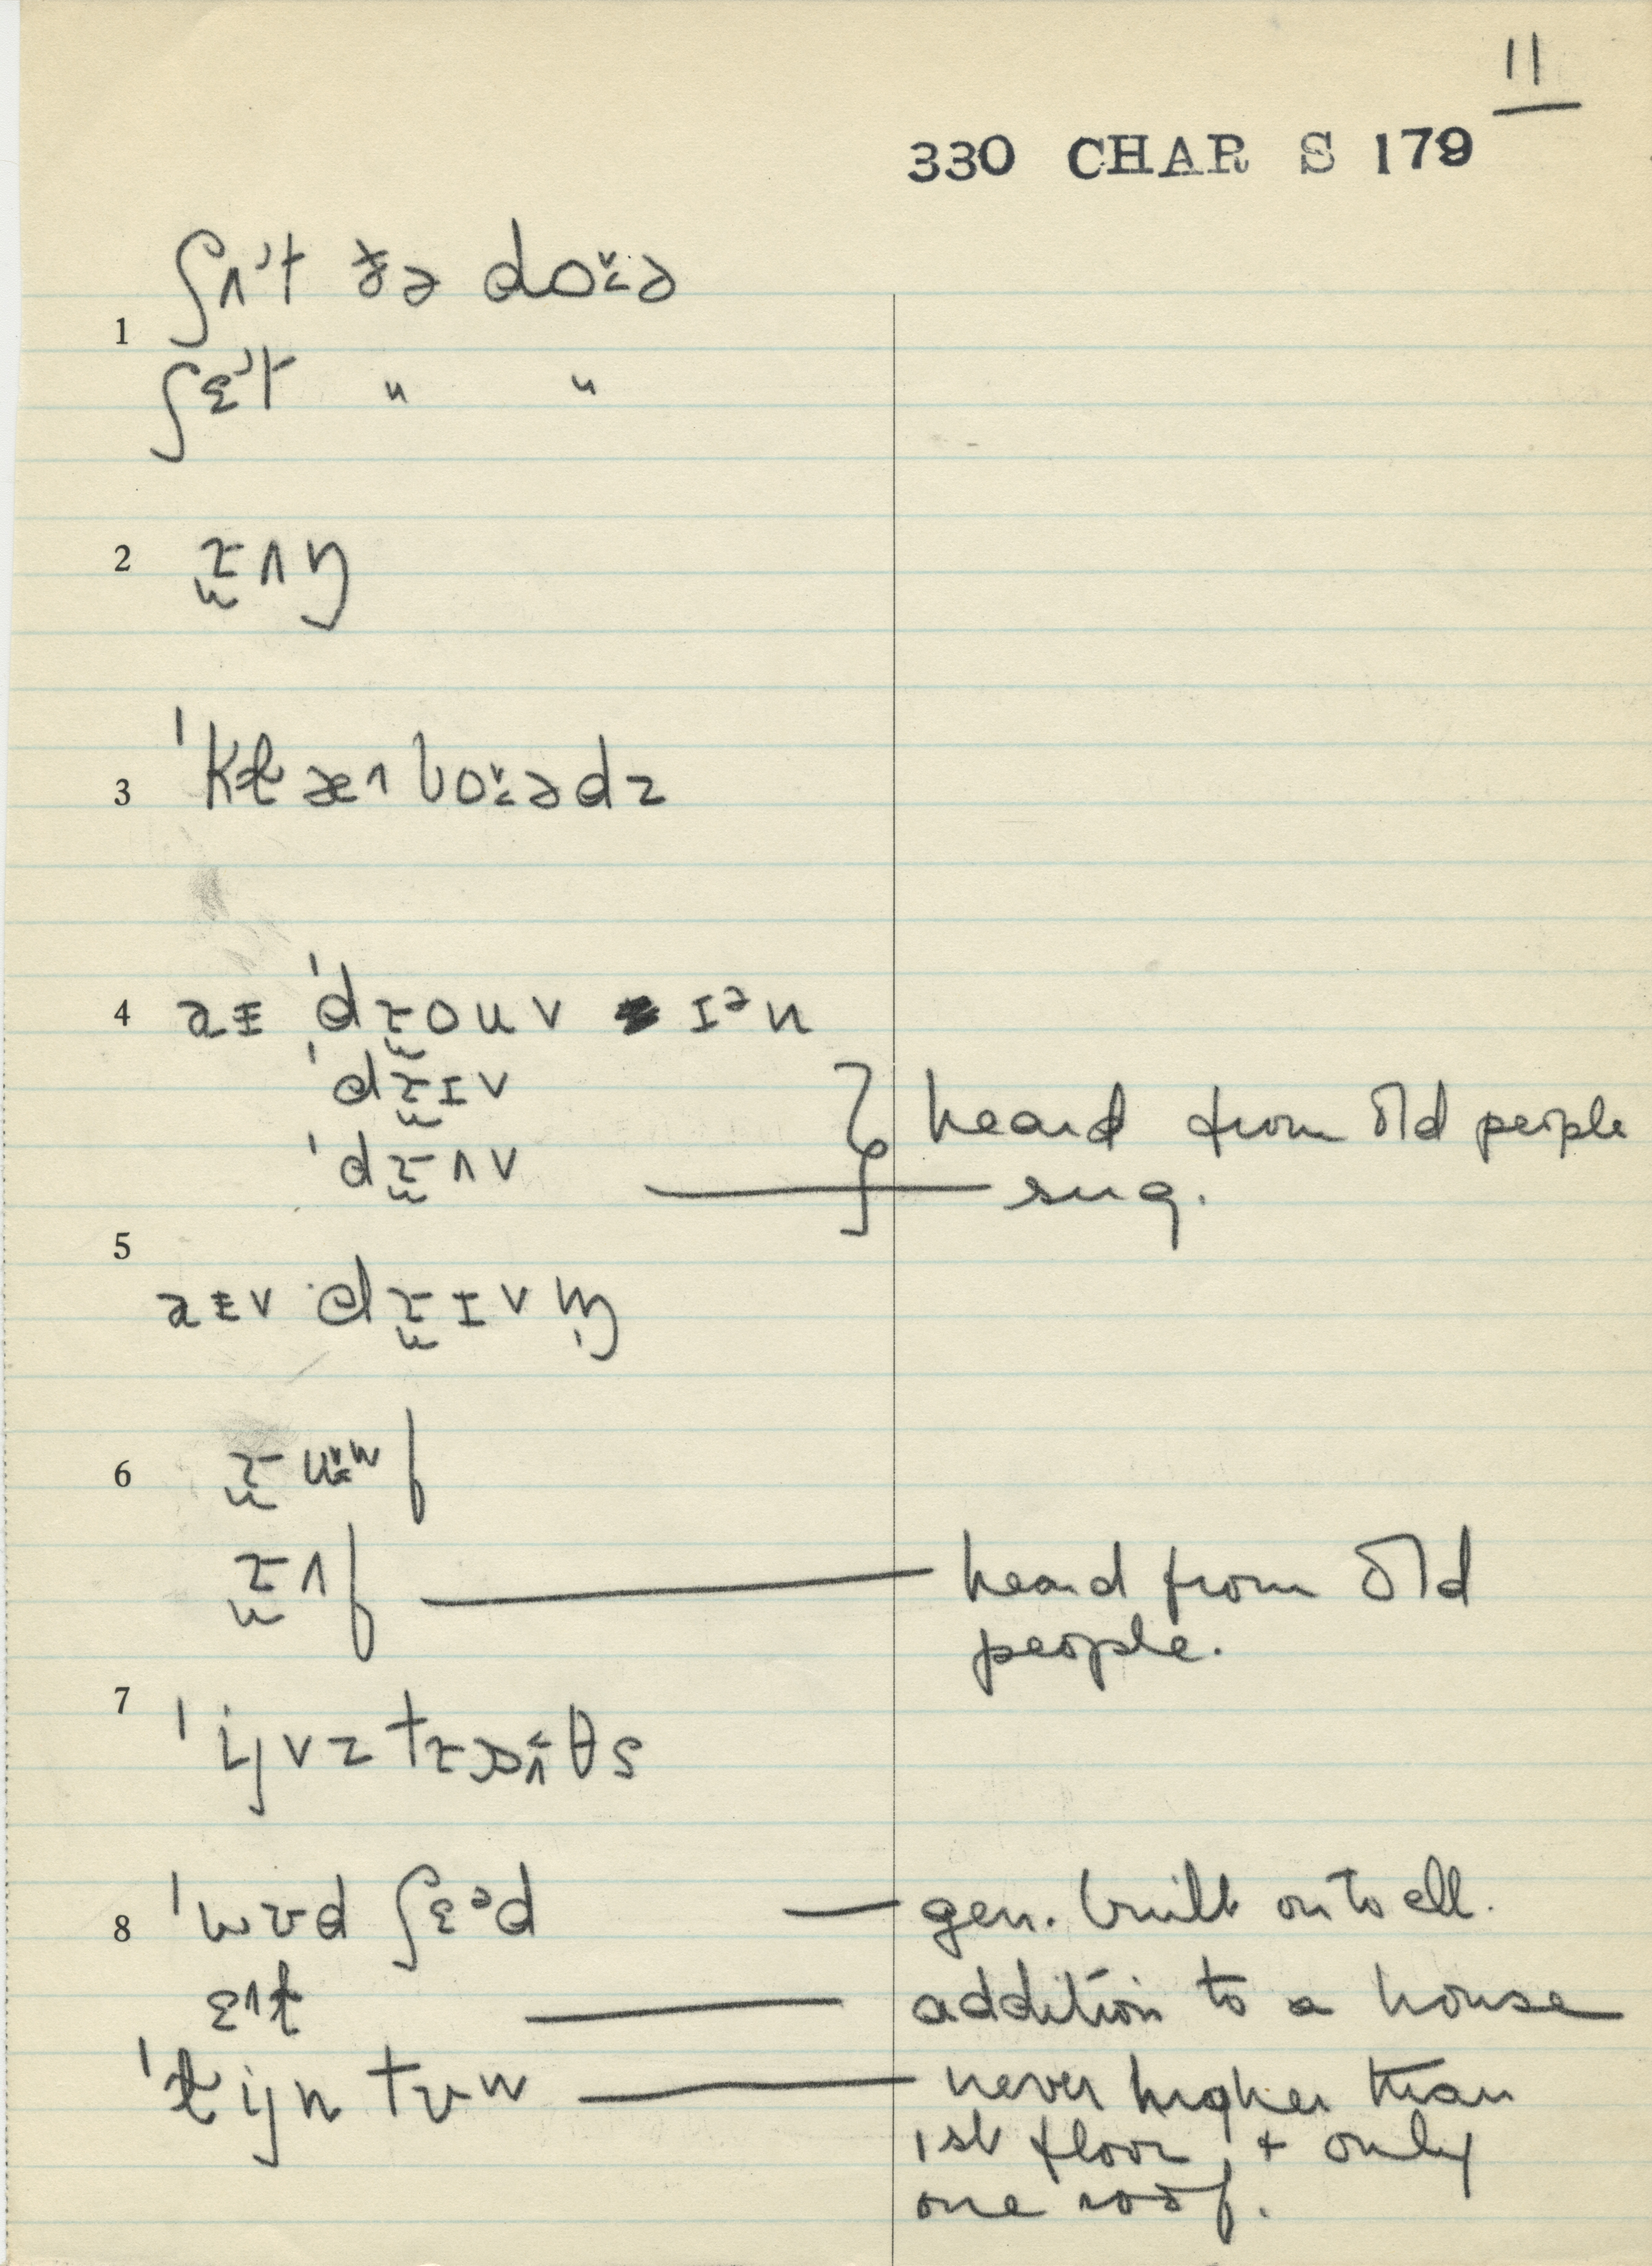 11
330 CHAR S 179
1 ʃʌˀt ðə doˇ˂ə
ʃɛˀt " "
2 ɹ̮ʌŋ
3 ˈkɫæʌboˇ˂ədz
4 aɪ ˈdɹ̮ouv ɪᵊn
ˈdɹ̮ɪv } heard from old people
ˈdɹ̮ʌv — sug.
5 aɪv dɹ̮ɪvm̩
6 ɹ̮uʷf
ɹ̮ʌf — heard from old
people.
7 ˈijvz θs
8 ˈwʊd ʃɛᵊd — gen. built onto ell.
ɛʌɫ — addition to a house
ˈɫijn tʊw — never higher than
1st floor, + only
one roof.